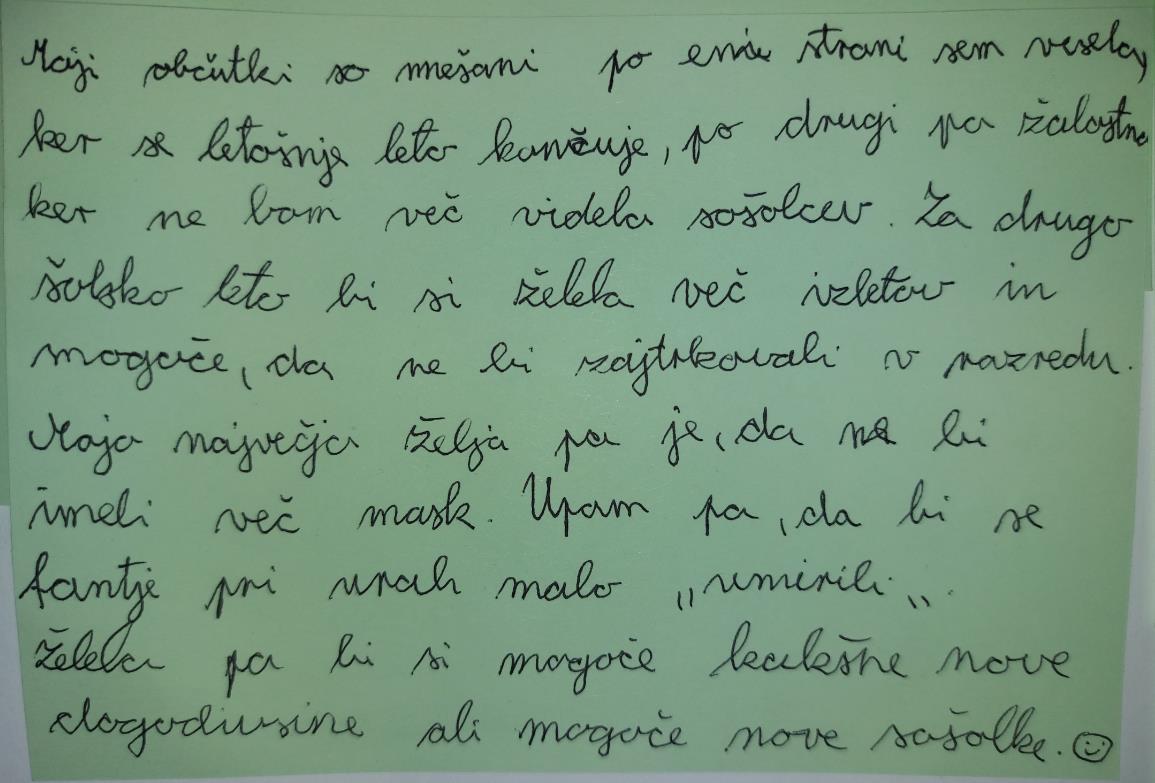 Moji občutki so mešani po eni strani sem vesela,
ker se letošnje leto končuje, po drugi pa žalostna
ker ne bom več videla sošolcev. Za drugo
šolsko leto bi si želela več izletov in
mogoče, da ne bi zajtrkovali v razredu.
Moja največja želja pa je, da ne bi
imeli več mask. Upam pa, da bi se
fantje pri urah malo „umirili„.
Želela pa bi si mogoče kakšne nove
dogodivsine ali mogoče nove sošolke. ☺